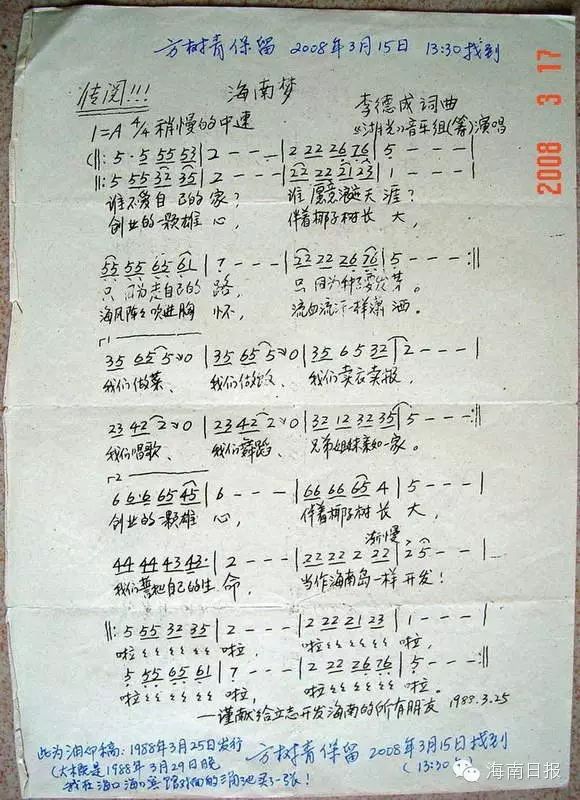 方树青保留 2008年3月15日 13:30找到
传阅!!! 海南梦 李德成词曲
1=A 4/4 稍慢的中速 《湖光》音乐组(筹)演唱
2008 3 17
(‖: 5·5 55 53 | 2 - - - | 2 22 26 76 | 5 - - - |
‖: 5 55 32 35 | 2 - - - | 22 22 21 23 | 1 - - - |
谁不爱自己的家? 谁愿意浪迹天涯?
创业的一颗雄心, 伴着椰子树长大,
55 55 65 61 | 7 - - - | 22 22 26 76 | 5 - - - :‖
只因为走自己的路, 只因为种子要发芽。
海风阵阵吹进胸怀, 流血流汗一样潇洒。
35 65 5×0 | 35 65 5×0 | 35 6 5 32 | 2 - - - |
我们做菜、 我们做 、 我们卖衣卖报,
23 42 2×0 | 23 42 2×0 | 32 12 32 35 | 5 - - - :‖
我们唱歌、 我们舞蹈、 兄弟姐妹亲如一家。
6 6·6 65 45 | 6 - - - | 66 66 65 4 | 5 - - - |
创业的一颗雄心, 伴着椰子树长大,
渐慢
44 44 43 43· | 2 - - - | 22 22 2 22 | 2 5 - - |
我们要把自己的生命, 当作海南岛一样开发!
‖: 5 55 32 35 | 2 - - - | 2 22 21 23 | 1 - - - |
啦 啦, 啦 啦,
5 55 65 61 | 7 - - - | 2 22 26 76 | 5 - - - :‖
啦 啦, 啦 啦。
—谨献给立志开发海南的所有朋友 1988.3.25
此为油印稿:1988年3月25日发行
(大概是1988年3月29日晚
我在海口海口宾馆对面的 池买一张!
方树青保留 2008年3月15日找到
(13:30)
海南日报